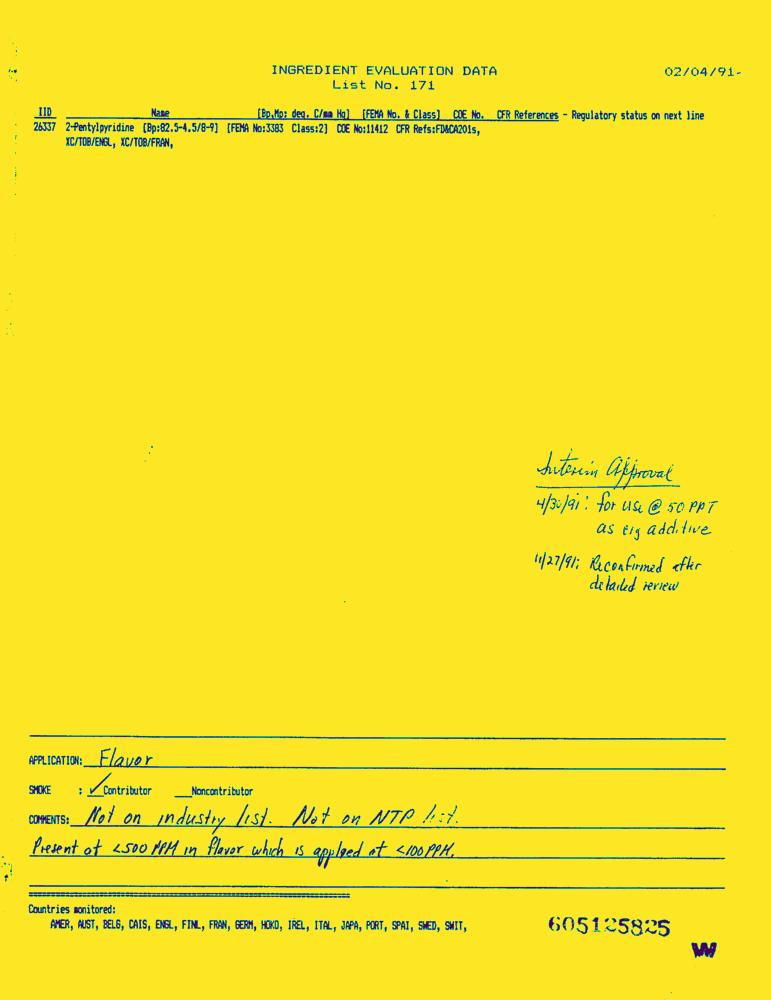 INGREDIENT EVALUATION DATA 02/04/91-
List No. 171
IID Name [Bp,Mp: deg. C/mm Hg] [FEMA No. & Class] COE No. CFR References - Regulatory status on next line
26337 2-Pentylpyridine [Bp:82.5-4.5/8-9] [FEMA No:3383 Class:2] COE No:11412 CFR Refs:FD&CA201s,
XC/TOB/ENGL, XC/TOB/FRAN,
Interim Approval
4/30/91: for use @ 50 PPT
as cig additive
11/27/91: Reconfirmed after
detailed review
APPLICATION: Flavor
SMOKE : ✓ Contributor __Noncontributor
COMMENTS: Not on industry list. Not on NTP list.
Present at <500 PPM in flavor which is applied at <100 PPM.
Countries monitored:
AMER, AUST, BELG, CAIS, ENGL, FINL, FRAN, GERM, HOKO, IREL, ITAL, JAPA, PORT, SPAI, SWED, SWIT,
605125825